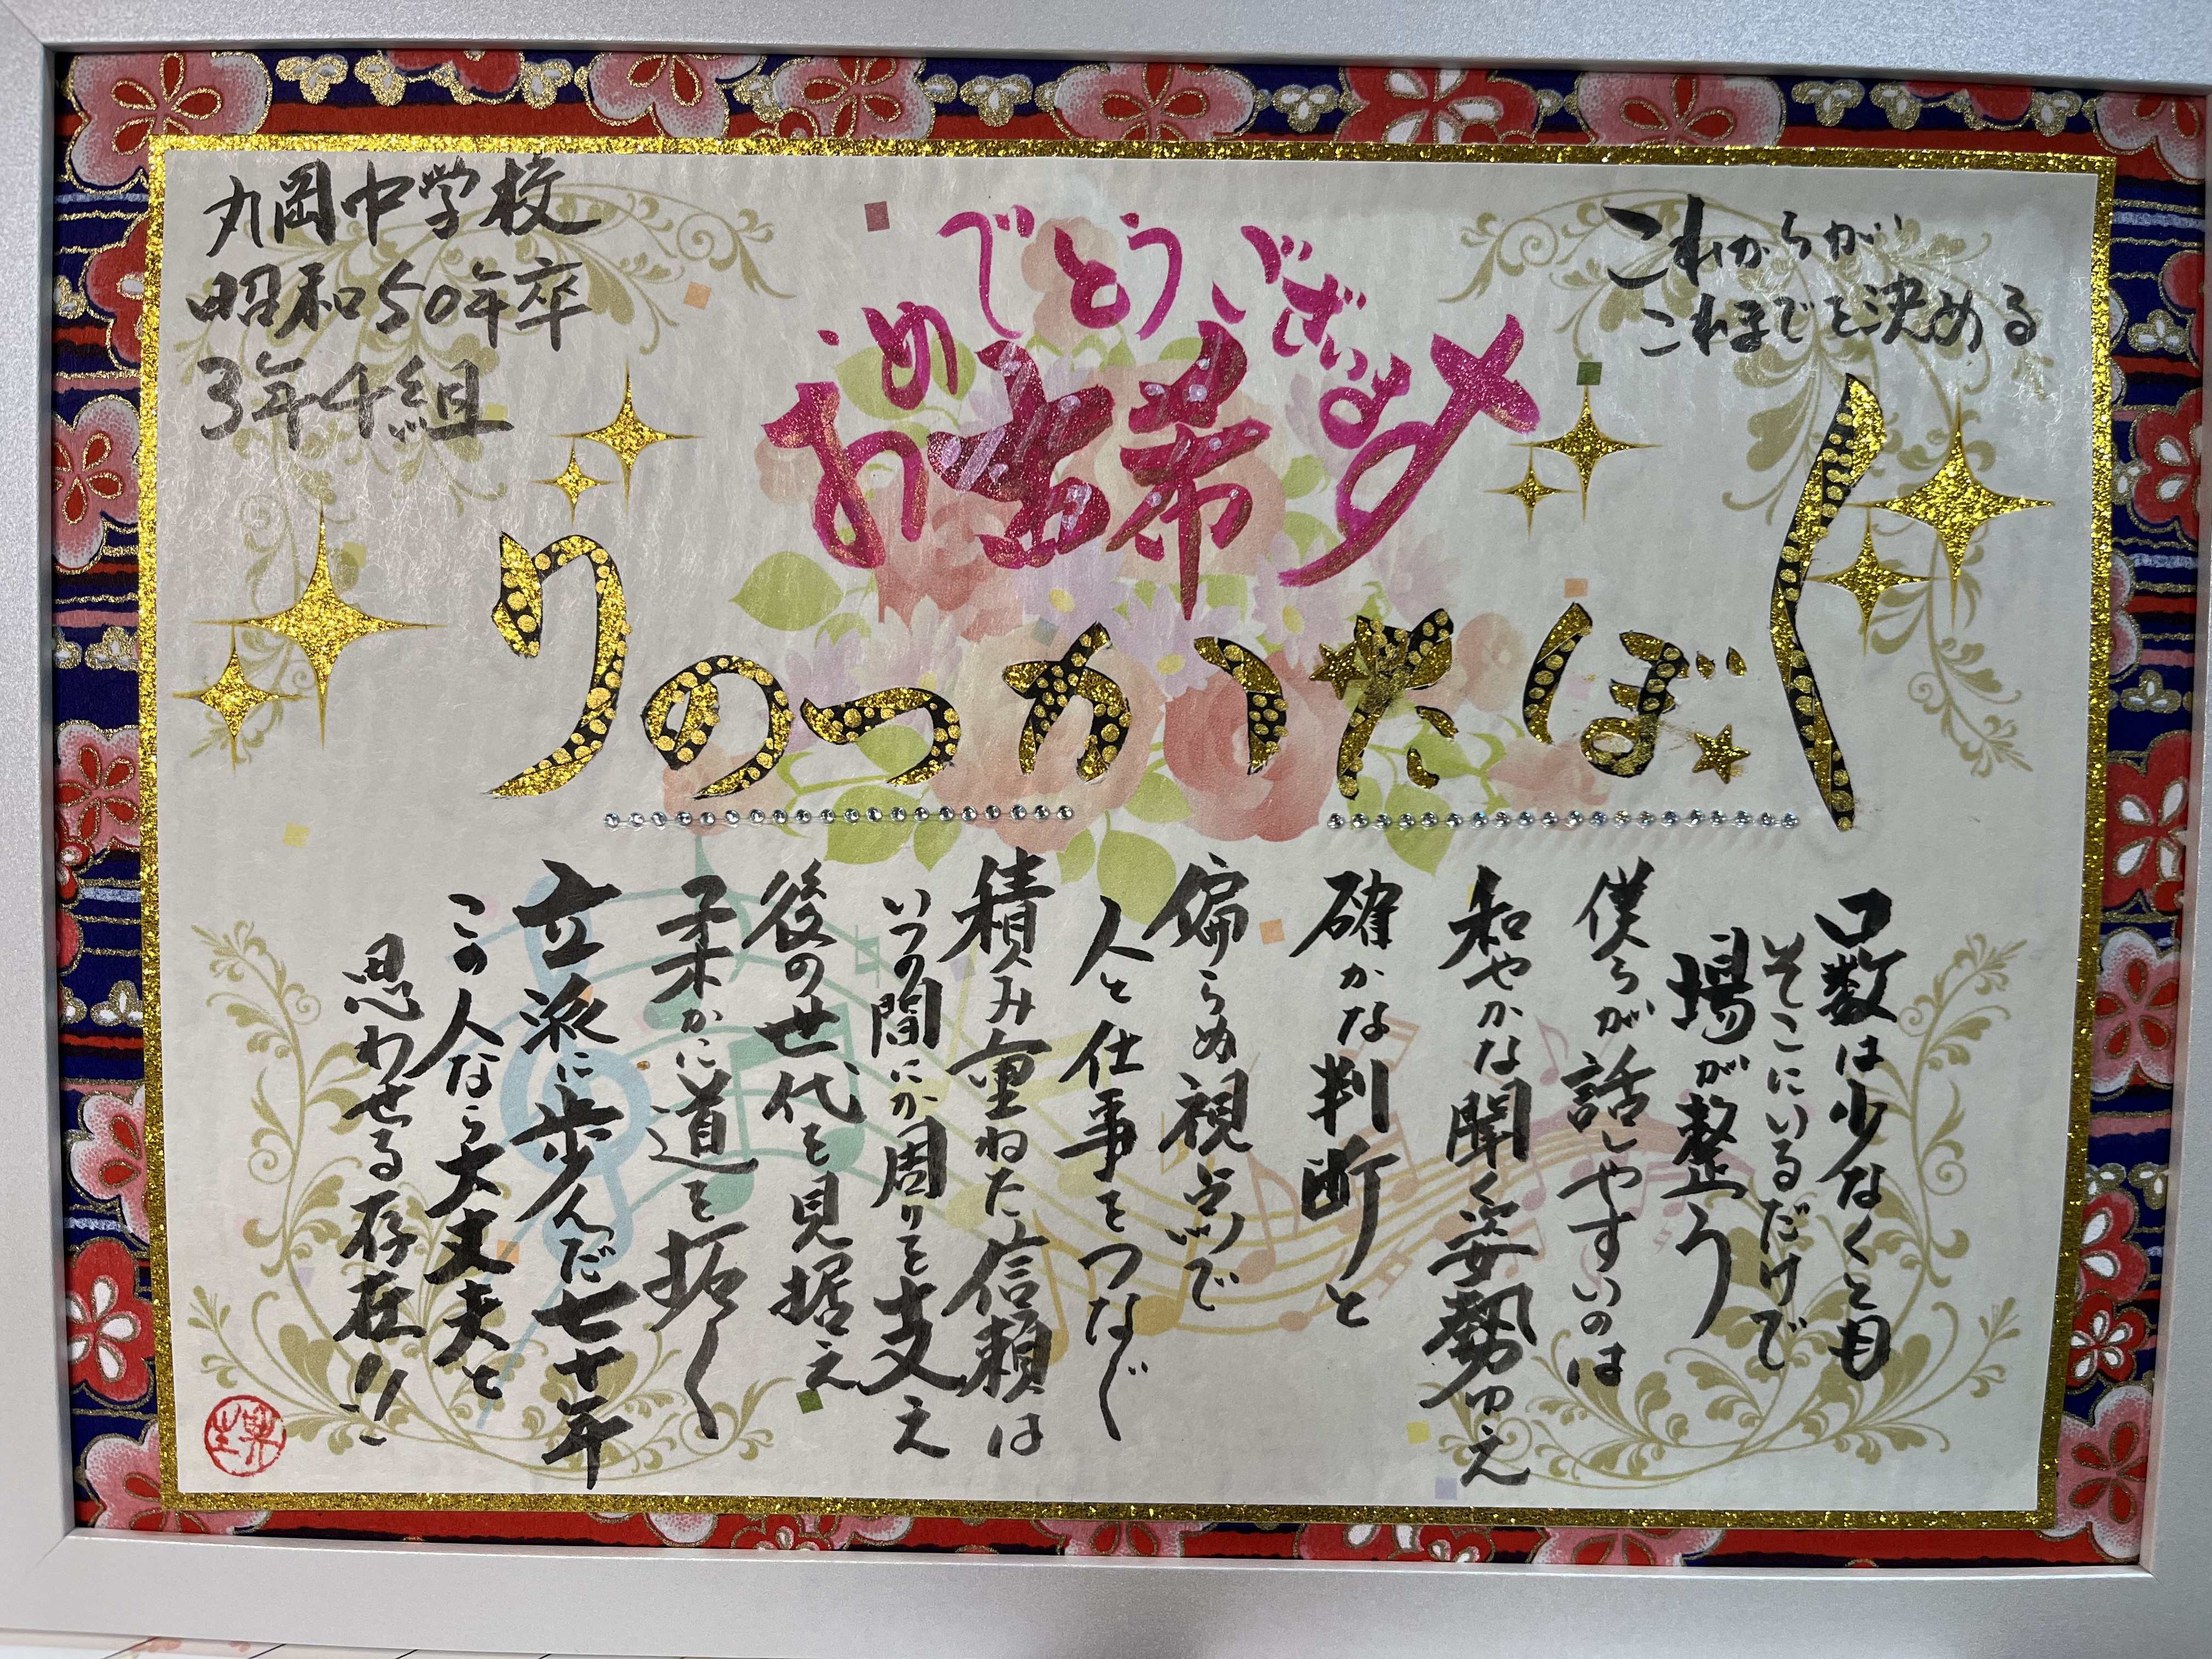 丸岡中学校
昭和50年卒
3年4組
おめでとうございます
古希
これからが
これまでを決める
くぼたかつのり
口数は少なくとも
そこにいるだけで
場が整う
僕らが話しやすいのは
和やかな聞く姿勢ゆえ
確かな判断と
偏らぬ視点で
人と仕事をつなぐ
積み重ねた信頼は
いつの間にか周りを支え
後の世代を見据え
柔かに道を拓く
立派に歩んだ七十年
この人なら大丈夫と
思わせる存在!!